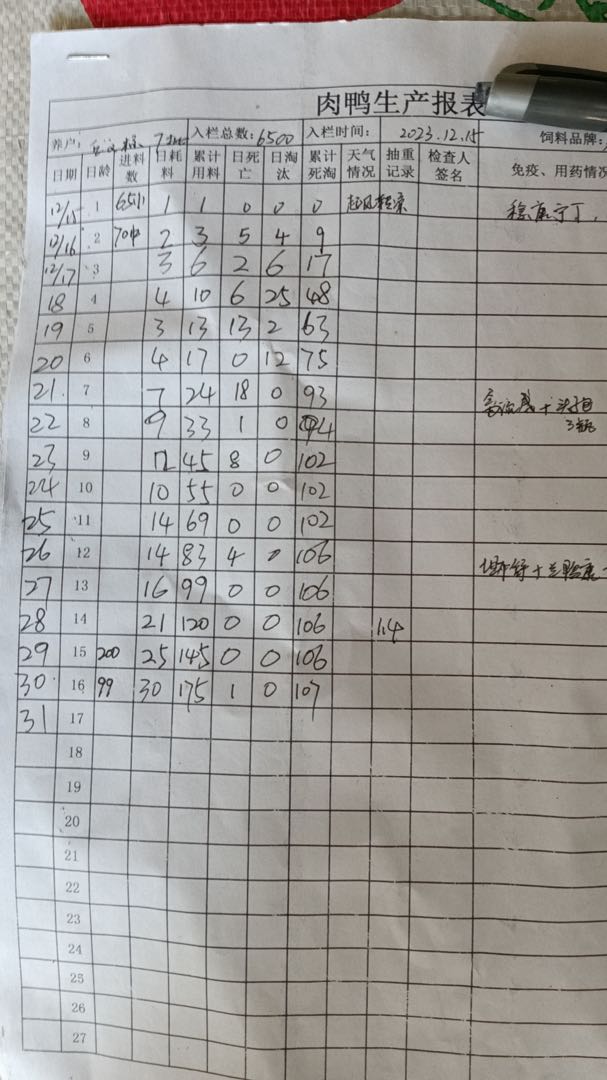 肉鸭生产报表
养户: 入栏总数: 6500 入栏时间: 2023.12.15 饲料品牌:
日期 日龄 进料数 日耗料 累计用料 日死亡 日淘汰 累计死淘 天气情况 抽重记录 检查人签名 免疫、用药情况
12/15 1 1 1 0 0 0
12/16 2 2 3 5 4 9
12/17 3 3 6 2 6 17
18 4 4 10 6 25 48
19 5 3 13 13 2 63
20 6 4 17 0 12 75
21. 7 7 24 18 0 93
22 8 9 33 1 0 94
23 9 12 45 8 0 102
24 10 10 55 0 0 102
25 11 14 69 0 0 102
26 12 14 83 4 0 106
27 13 16 99 0 0 106
28 14 21 120 0 0 106 1.4
29 15 200 25 145 0 0 106
30 16 99 30 175 1 0 107
31 17
18
19
20
21
22
23
24
25
26
27